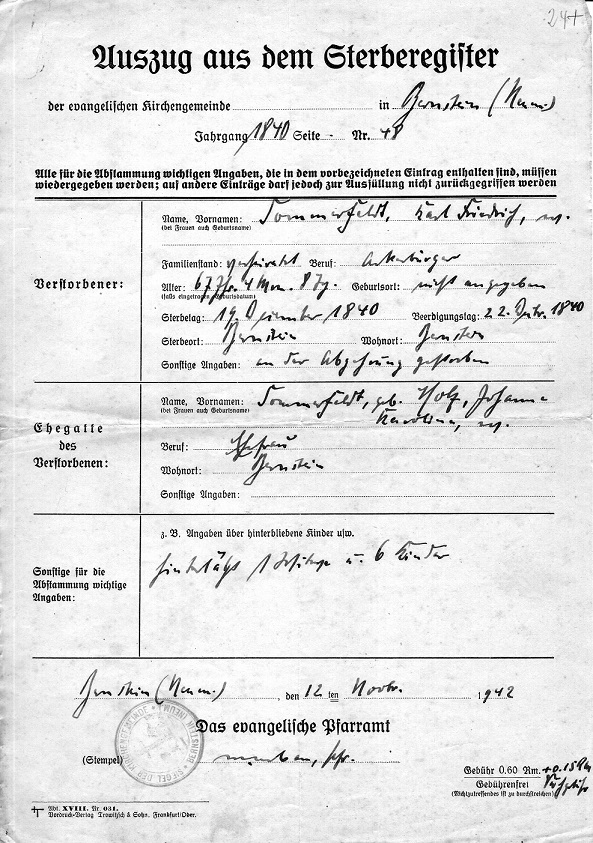 247
Auszug aus dem Sterberegister
der evangelischen Kirchengemeinde in Bernstein (Neum.)
Jahrgang 1840 Seite - Nr. 48
Alle für die Abstammung wichtigen Angaben, die in dem vorbezeichneten Eintrag enthalten sind, müssen
wiedergegeben werden; auf andere Einträge darf jedoch zur Ausfüllung nicht zurückgegriffen werden
Verstorbener:
Name, Vornamen: Sommerfeldt, Karl Friedrich, ev.
(bei Frauen auch Geburtsname)
Familienstand: verheiratet Beruf: Ackerbürger
Alter: 67 J. 4 Mon. 8 Tg. Geburtsort: nicht angegeben
(falls eingetragen Geburtsdatum)
Sterbetag: 19. Dezember 1840 Beerdigungstag: 22. Dezbr. 1840
Sterbeort: Bernstein Wohnort: Bernstein
Sonstige Angaben: an der Abzehrung gestorben
Ehegatte
des
Verstorbenen:
Name, Vornamen: Sommerfeldt, geb. Holz, Johanna
(bei Frauen auch Geburtsname)
Karolina, ev.
Beruf: Ehefrau
Wohnort: Bernstein
Sonstige Angaben:
Sonstige für die
Abstammung wichtige
Angaben:
z. B. Angaben über hinterbliebene Kinder usw.
hinterläßt 1 Witwe u. 6 Kinder
Bernstein (Neum.), den 12 ten Novbr. 1942
Das evangelische Pfarramt
(Stempel)
Gebühr 0.60 Rm.
Gebührenfrei
(Nichtzutreffendes ist zu durchstreichen)
Abt. XVIII. Nr. 031.
Vordruck-Verlag Trowitzsch & Sohn. Frankfurt/Oder.